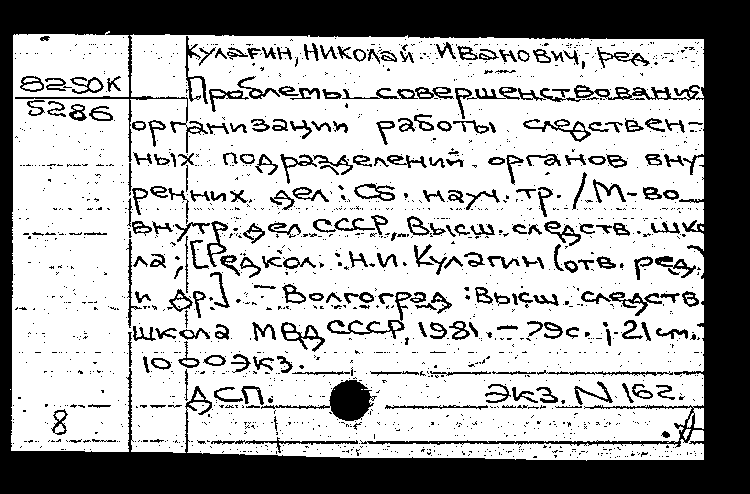 Кулагин, Николай Иванович, ред.
8250К
5286
Проблемы совершенствования
организации работы следствен-
ных подразделений органов внут-
ренних дел : Сб. науч. тр. / М-во
внутр. дел СССР, Высш. следств. шко
ла ; [Редкол. : Н.И. Кулагин (отв. ред.)
и др.]. – Волгоград : Высш. следств.
школа МВД СССР, 1981. – 79 с. ; 21 см. –
1000 экз.
ДСП. Экз. N 162.
8